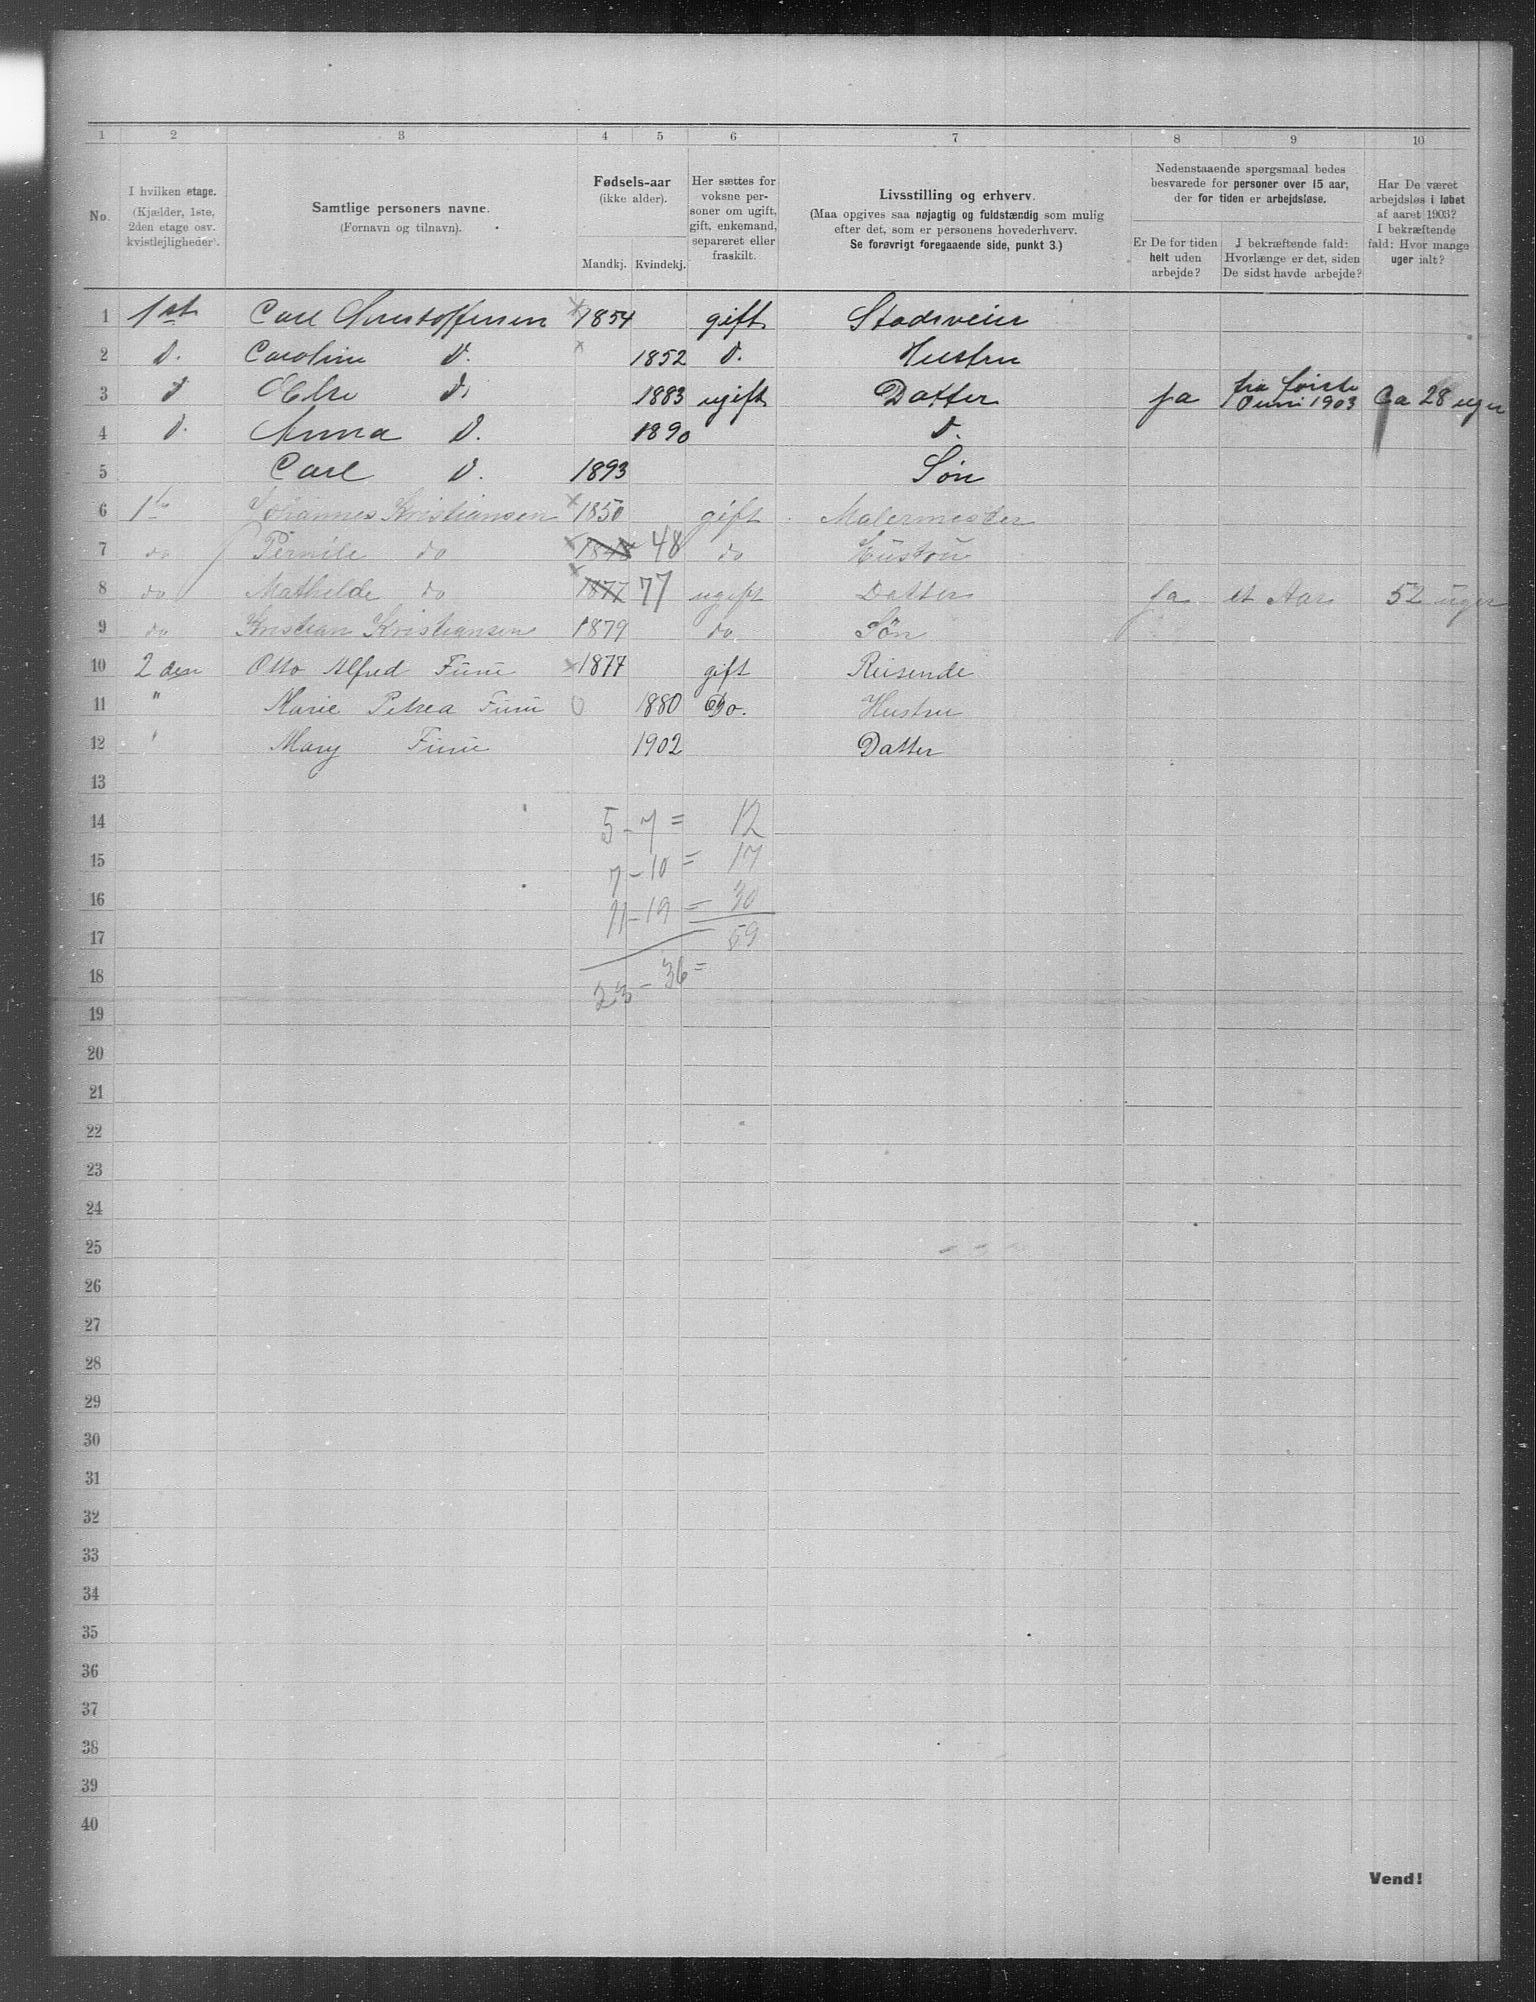 1 2 3 4 5 6 7 8 9 10
No.
I hvilken etage.
(Kjælder, 1ste,
2den etage osv.
kvistlejligheder).
Samtlige personers navne.
(Fornavn og tilnavn).
Fødsels-aar
(ikke alder).
Mandkj. Kvindekj.
Her sættes for
voksne per-
soner om ugift,
gift, enkemand,
separeret eller
fraskilt.
Livsstilling og erhverv.
(Maa opgives saa nøjagtig og fuldstændig som mulig
efter det, som er personens hovederhverv.
Se forøvrigt foregaaende side, punkt 3.)
Nedenstaaende spørgsmaal bedes
besvarede for personer over 15 aar,
der for tiden er arbejdsløse.
Er De for tiden
helt uden
arbejde?
I bekræftende fald:
Hvorlænge er det, siden
De sidst havde arbejde?
Har De været
arbejdsløs i løbet
af aaret 1903?
I bekræftende
fald: Hvor mange
uger ialt?
1 1st Carl Christoffersen × 1854 gift Stadsveier
2 d. Caroline d. × 1852 d. Hustru
3 d Else d. 1883 ugift Datter ja fra første Juni 1903 Ca 28 uger
4 d. Anna d. 1890 d.
5 Carl d. 1893 Søn
6 1ste Johannes Kristiansen × 1850 gift Malermester
7 do Pernile do × 1848 48 do Hustru
8 do Mathilde do × 1877 77 ugift Datter ja et Aar 52 uger
9 do Kristian Kristiansen 1879 do Søn
10 2den Otto Alfred Furu × 1877 gift Reisende
11 " Marie Petrea Furu 0 1880 Do. Hustru
12 " Mary Furu 1902 Datter
13
14 5 - 7 = 12
15 7 - 10 = 17
16 11 - 19 = 30
17 59
18 23 - 36 =
19
20
21
22
23
24
25
26
27
28
29
30
31
32
33
34
35
36
37
38
39
40
Vend!